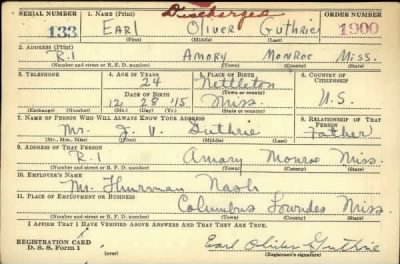 SERIAL NUMBER 1. NAME (Print) Discharged ORDER NUMBER
133 EARL OLIVER GUTHRIE 1900
(First) (Middle) (Last)
2. ADDRESS (Print)
R.1 AMORY MONROE MISS.
(Number and street or R. F. D. number) (Town) (County) (State)
3. TELEPHONE 4. AGE IN YEARS 5. PLACE OF BIRTH 6. COUNTRY OF CITIZENSHIP
24 Nettleton
DATE OF BIRTH (Town or county)
12 28 '15 Miss. U.S.
(Exchange) (Number) (Mo.) (Day) (Yr.) (State or country)
7. NAME OF PERSON WHO WILL ALWAYS KNOW YOUR ADDRESS 8. RELATIONSHIP OF THAT PERSON
Mr. J. V. Guthrie Father
(Mr., Mrs., Miss) (First) (Middle) (Last)
9. ADDRESS OF THAT PERSON
R.1 Amory Monroe Miss.
(Number and street or R. F. D. number) (Town) (County) (State)
10. EMPLOYER'S NAME
Mr. Thurman Nash
11. PLACE OF EMPLOYMENT OR BUSINESS
Columbus Lowndes Miss.
(Number and street or R. F. D. number) (Town) (County) (State)
I AFFIRM THAT I HAVE VERIFIED ABOVE ANSWERS AND THAT THEY ARE TRUE.
REGISTRATION CARD
D. S. S. Form 1 Earl Oliver Guthrie
(Registrant's signature)